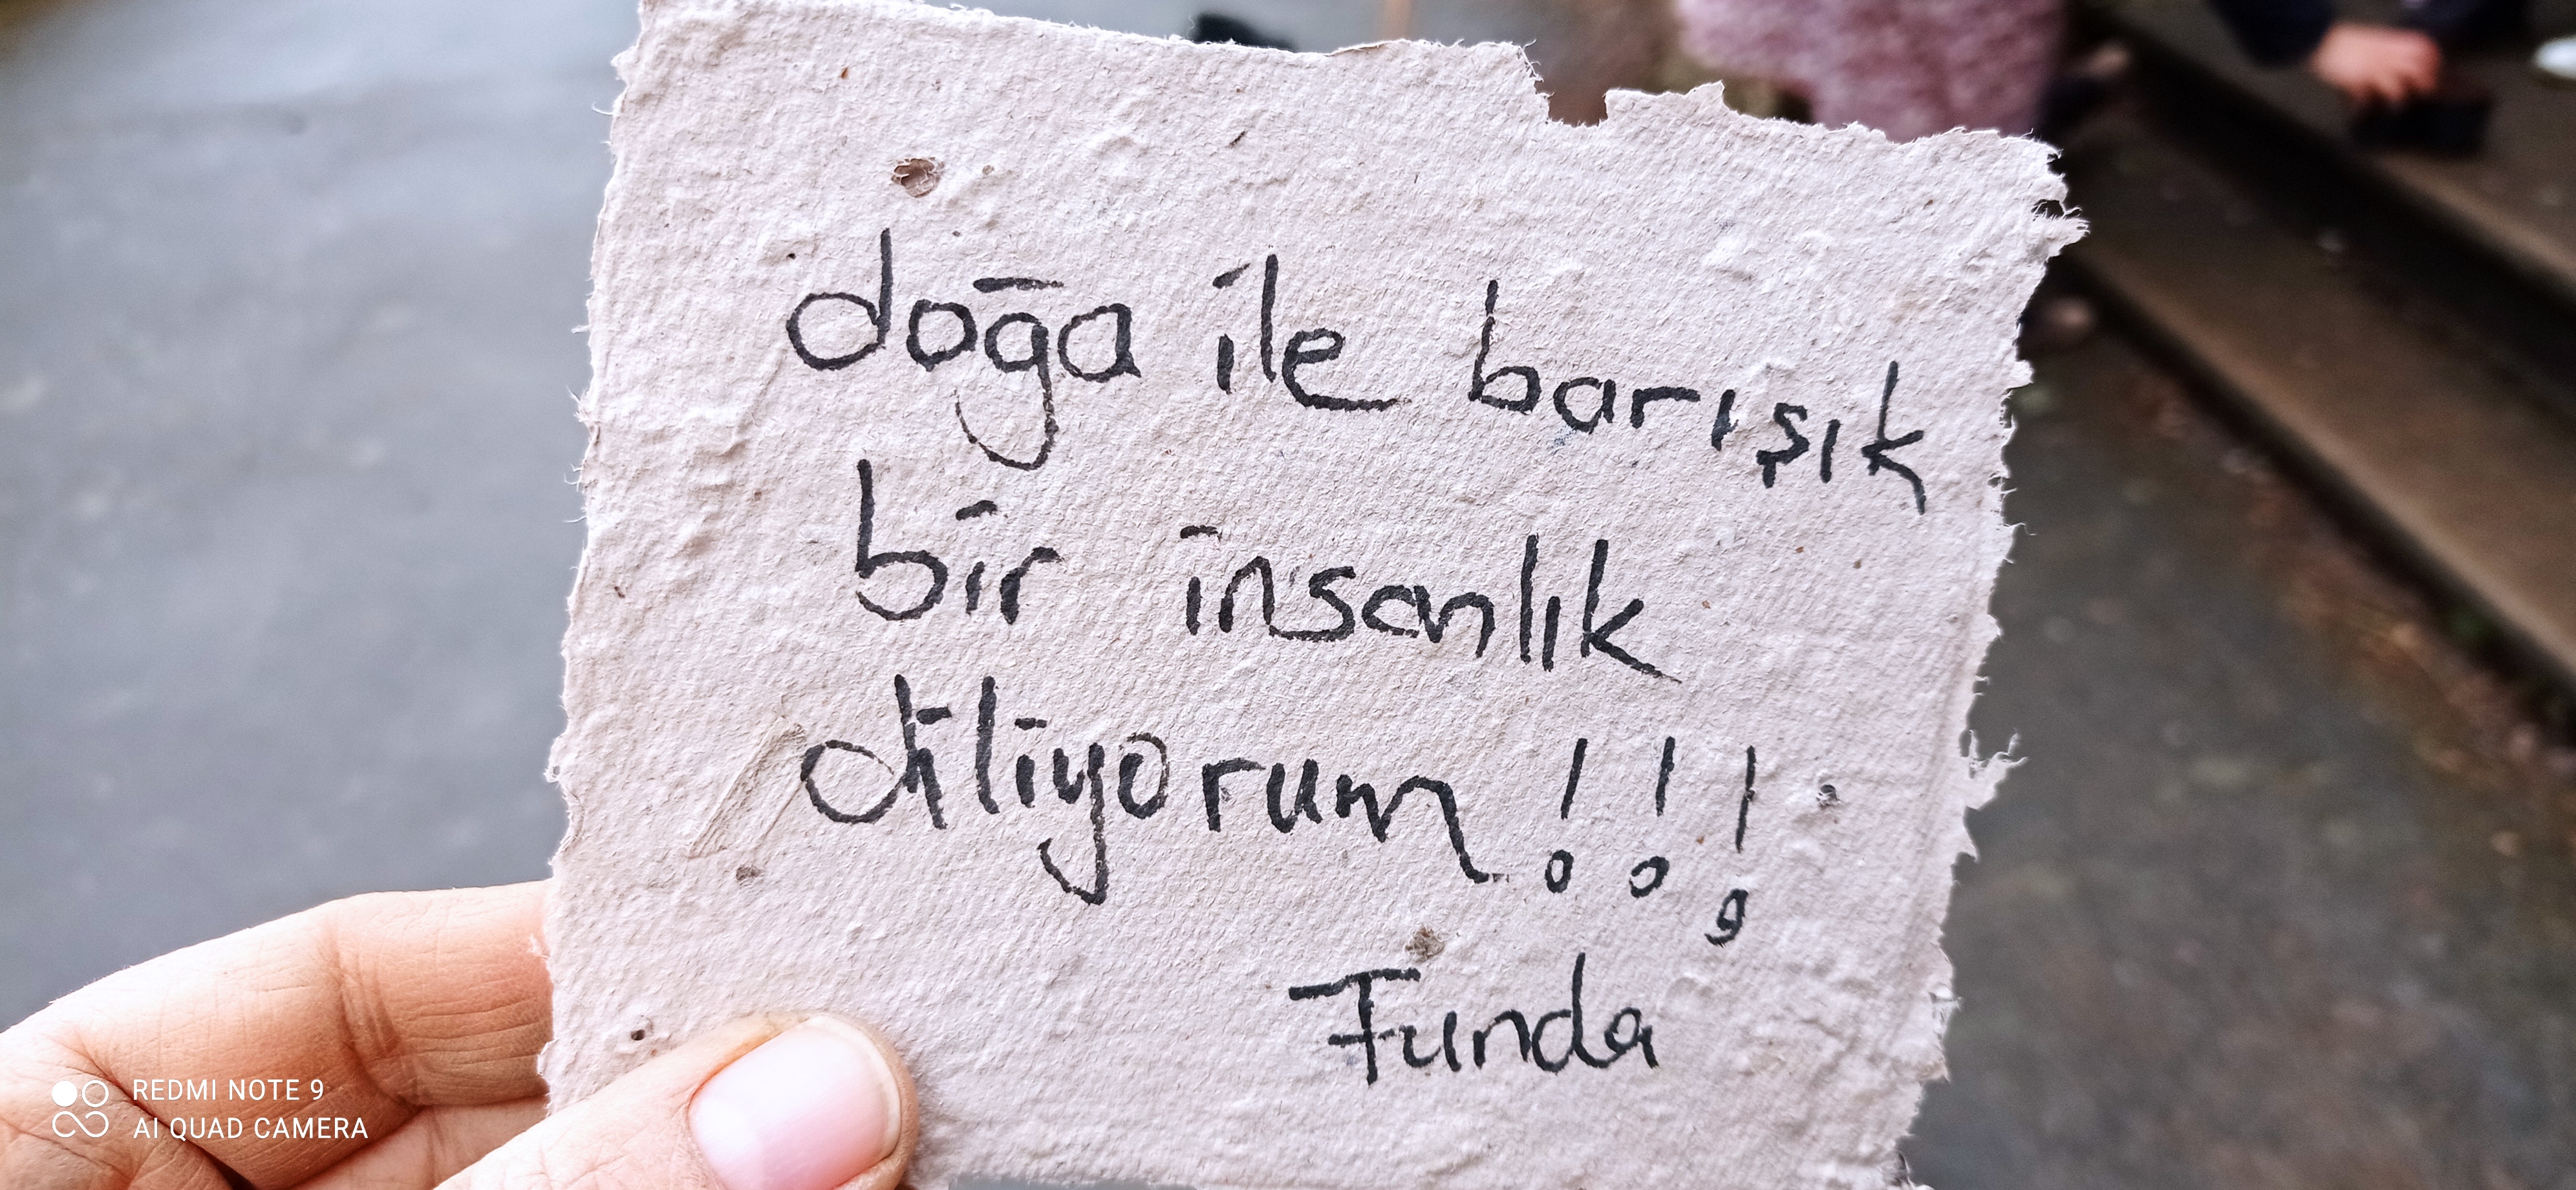 doğa ile barışık
bir insanlık
diliyorum!!!
Funda
REDMI NOTE 9
AI QUAD CAMERA